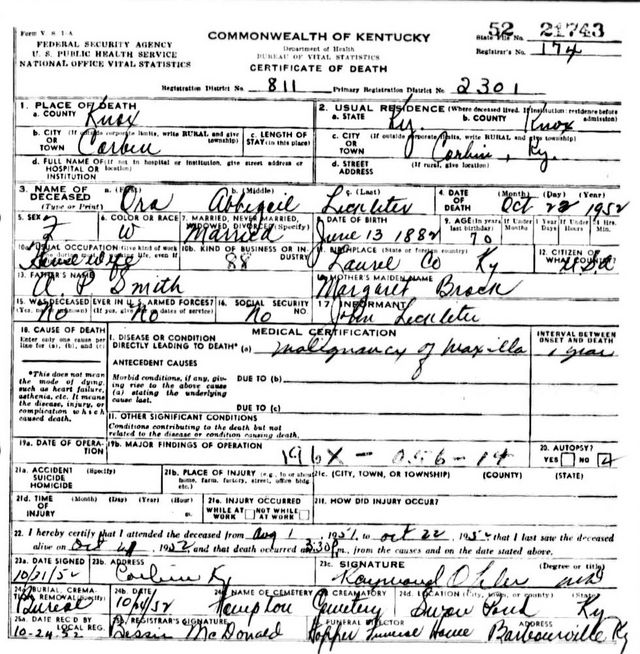 Form V S 1-A
FEDERAL SECURITY AGENCY
U. S. PUBLIC HEALTH SERVICE
NATIONAL OFFICE VITAL STATISTICS
COMMONWEALTH OF KENTUCKY
Department of Health
BUREAU OF VITAL STATISTICS
CERTIFICATE OF DEATH
52 21743
State File No.
Registrar's No. 174
Registration District No. 811 Primary Registration District No. 2301
1. PLACE OF DEATH
a. COUNTY Knox
2. USUAL RESIDENCE (Where deceased lived. If institution: residence before admission)
a. STATE Ky. b. COUNTY Knox
b. CITY OR TOWN (If outside corporate limits, write RURAL and give township) Corbin
c. LENGTH OF STAY (in this place)
c. CITY OR TOWN (If outside corporate limits, write RURAL and give township) Corbin, Ky.
d. FULL NAME OF HOSPITAL OR INSTITUTION (If not in hospital or institution, give street address or location)
d. STREET ADDRESS (If rural, give location)
3. NAME OF DECEASED (Type or Print) a. (First) b. (Middle) c. (Last)
Ora Abbigail
4. DATE OF DEATH (Month) (Day) (Year)
Oct 22 1952
5. SEX F
6. COLOR OR RACE W
7. MARRIED, NEVER MARRIED, WIDOWED, DIVORCED (Specify) Married
8. DATE OF BIRTH June 13 1882
9. AGE (In years last birthday) 70
If Under 1 Year If Under 24 Hrs.
10a. USUAL OCCUPATION (Give kind of work House wife
10b. KIND OF BUSINESS OR INDUSTRY 88
11. BIRTHPLACE (State or foreign country) Laurel Co Ky
12. CITIZEN OF WHAT COUNTRY? USA
13. FATHER'S NAME
A. P. Smith
14. MOTHER'S MAIDEN NAME
Margaret Brock
15. WAS DECEASED EVER IN U. S. ARMED FORCES? (Yes, no, or unknown) (If yes, give war or dates of service)
No No
16. SOCIAL SECURITY NO. No
17. INFORMANT
John
18. CAUSE OF DEATH
Enter only one cause per line for (a), (b), and (c)
MEDICAL CERTIFICATION
INTERVAL BETWEEN ONSET AND DEATH
I. DISEASE OR CONDITION DIRECTLY LEADING TO DEATH* (a) malignancy of maxilla 1 year
*This does not mean the mode of dying, such as heart failure, asthenia, etc. It means the disease, injury, or complication which caused death.
ANTECEDENT CAUSES
Morbid conditions, if any, giving rise to the above cause (a) stating the underlying cause last.
DUE TO (b)
DUE TO (c)
II. OTHER SIGNIFICANT CONDITIONS
Conditions contributing to the death but not related to the disease or condition causing death.
19a. DATE OF OPERATION
19b. MAJOR FINDINGS OF OPERATION
196X - 056-14
20. AUTOPSY?
YES NO
21a. ACCIDENT SUICIDE HOMICIDE (Specify)
21b. PLACE OF INJURY (e.g., in or about home, farm, factory, street, office bldg., etc.)
21c. (CITY, TOWN, OR TOWNSHIP) (COUNTY) (STATE)
21d. TIME OF INJURY (Month) (Day) (Year) (Hour)
21e. INJURY OCCURRED
WHILE AT WORK NOT WHILE AT WORK
21f. HOW DID INJURY OCCUR?
22. I hereby certify that I attended the deceased from Aug 1, 1951, to Oct 22, 1952 that I last saw the deceased
alive on Oct, 1952 and that death occurred 3:30 P m., from the causes and on the date stated above.
23a. DATE SIGNED 10/31/52
23b. ADDRESS Corbin Ky
23c. SIGNATURE (Degree or title)
Raymond MD
24a. BURIAL, CREMATION, REMOVAL (Specify) Burial
24b. DATE 10/24/52
24c. NAME OF CEMETERY OR CREMATORY Cemetery
24d. LOCATION (City, town, or county) (State)
Swan Pond Ky
25a. DATE REC'D BY LOCAL REG. 10-24-52
25b. REGISTRAR'S SIGNATURE Bessie McDonald
FUNERAL DIRECTOR Hopper Funeral Home
ADDRESS Barbourville Ky